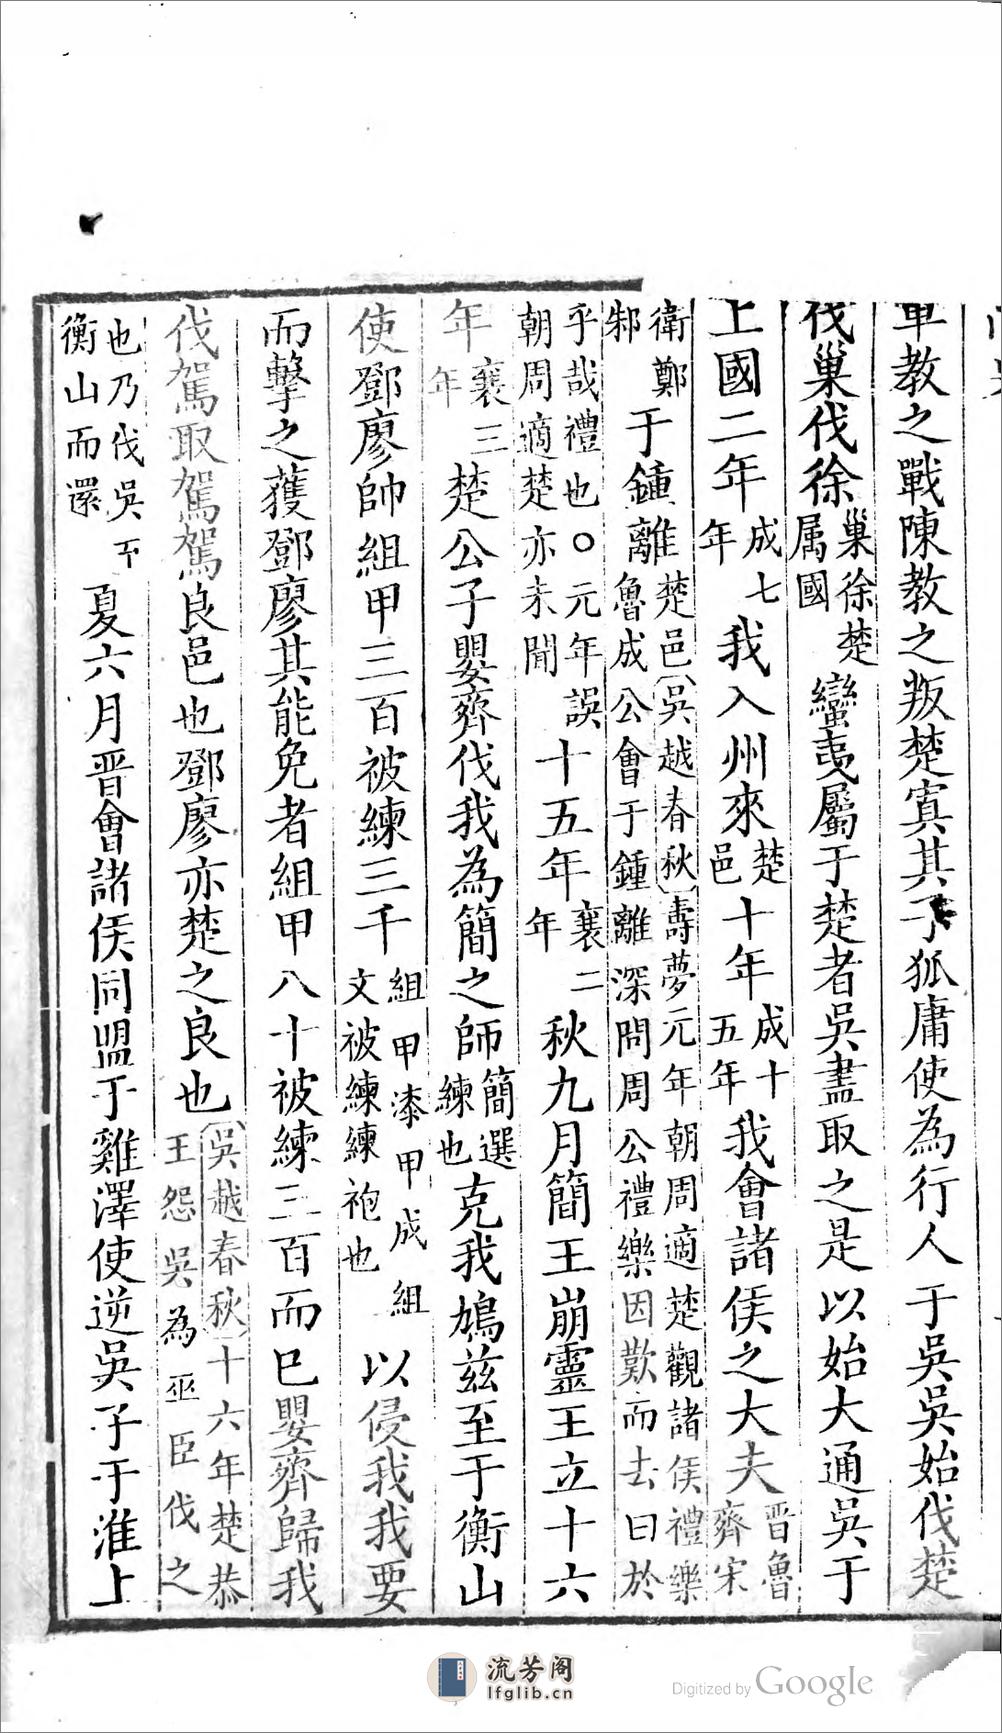 車教之戰陳教之叛楚寘其子狐庸使為行人于吳吳始伐楚
伐巢伐徐巢徐楚屬國蠻夷屬于楚者吳盡取之是以始大通吳于
上國二年成七年我入州來楚邑十年成十五年我會諸侯之大夫晉魯齊宋
衛鄭邾于鍾離楚邑吳越春秋壽夢元年朝周適楚觀諸侯禮樂魯成公會于鍾離深問周公禮樂因歎而去曰於
乎哉禮也○元年朝周適楚亦未聞誤十五年襄二年秋九月簡王崩靈王立十六
年襄三年楚公子嬰齊伐我為簡之師簡選練也克我鳩茲至于衡山
使鄧廖帥組甲三百被練三千組甲漆甲成組文被練練袍也以侵我我要
而擊之獲鄧廖其能免者組甲八十被練三百而已嬰齊歸我
伐駕取駕駕良邑也鄧廖亦楚之良也吳越春秋十六年楚恭王怨吳為巫臣伐之
也乃伐吳至衡山而還夏六月晉會諸侯同盟于雞澤使逆吳子于淮上
流芳阁
lfglib.cn
Digitized by Google